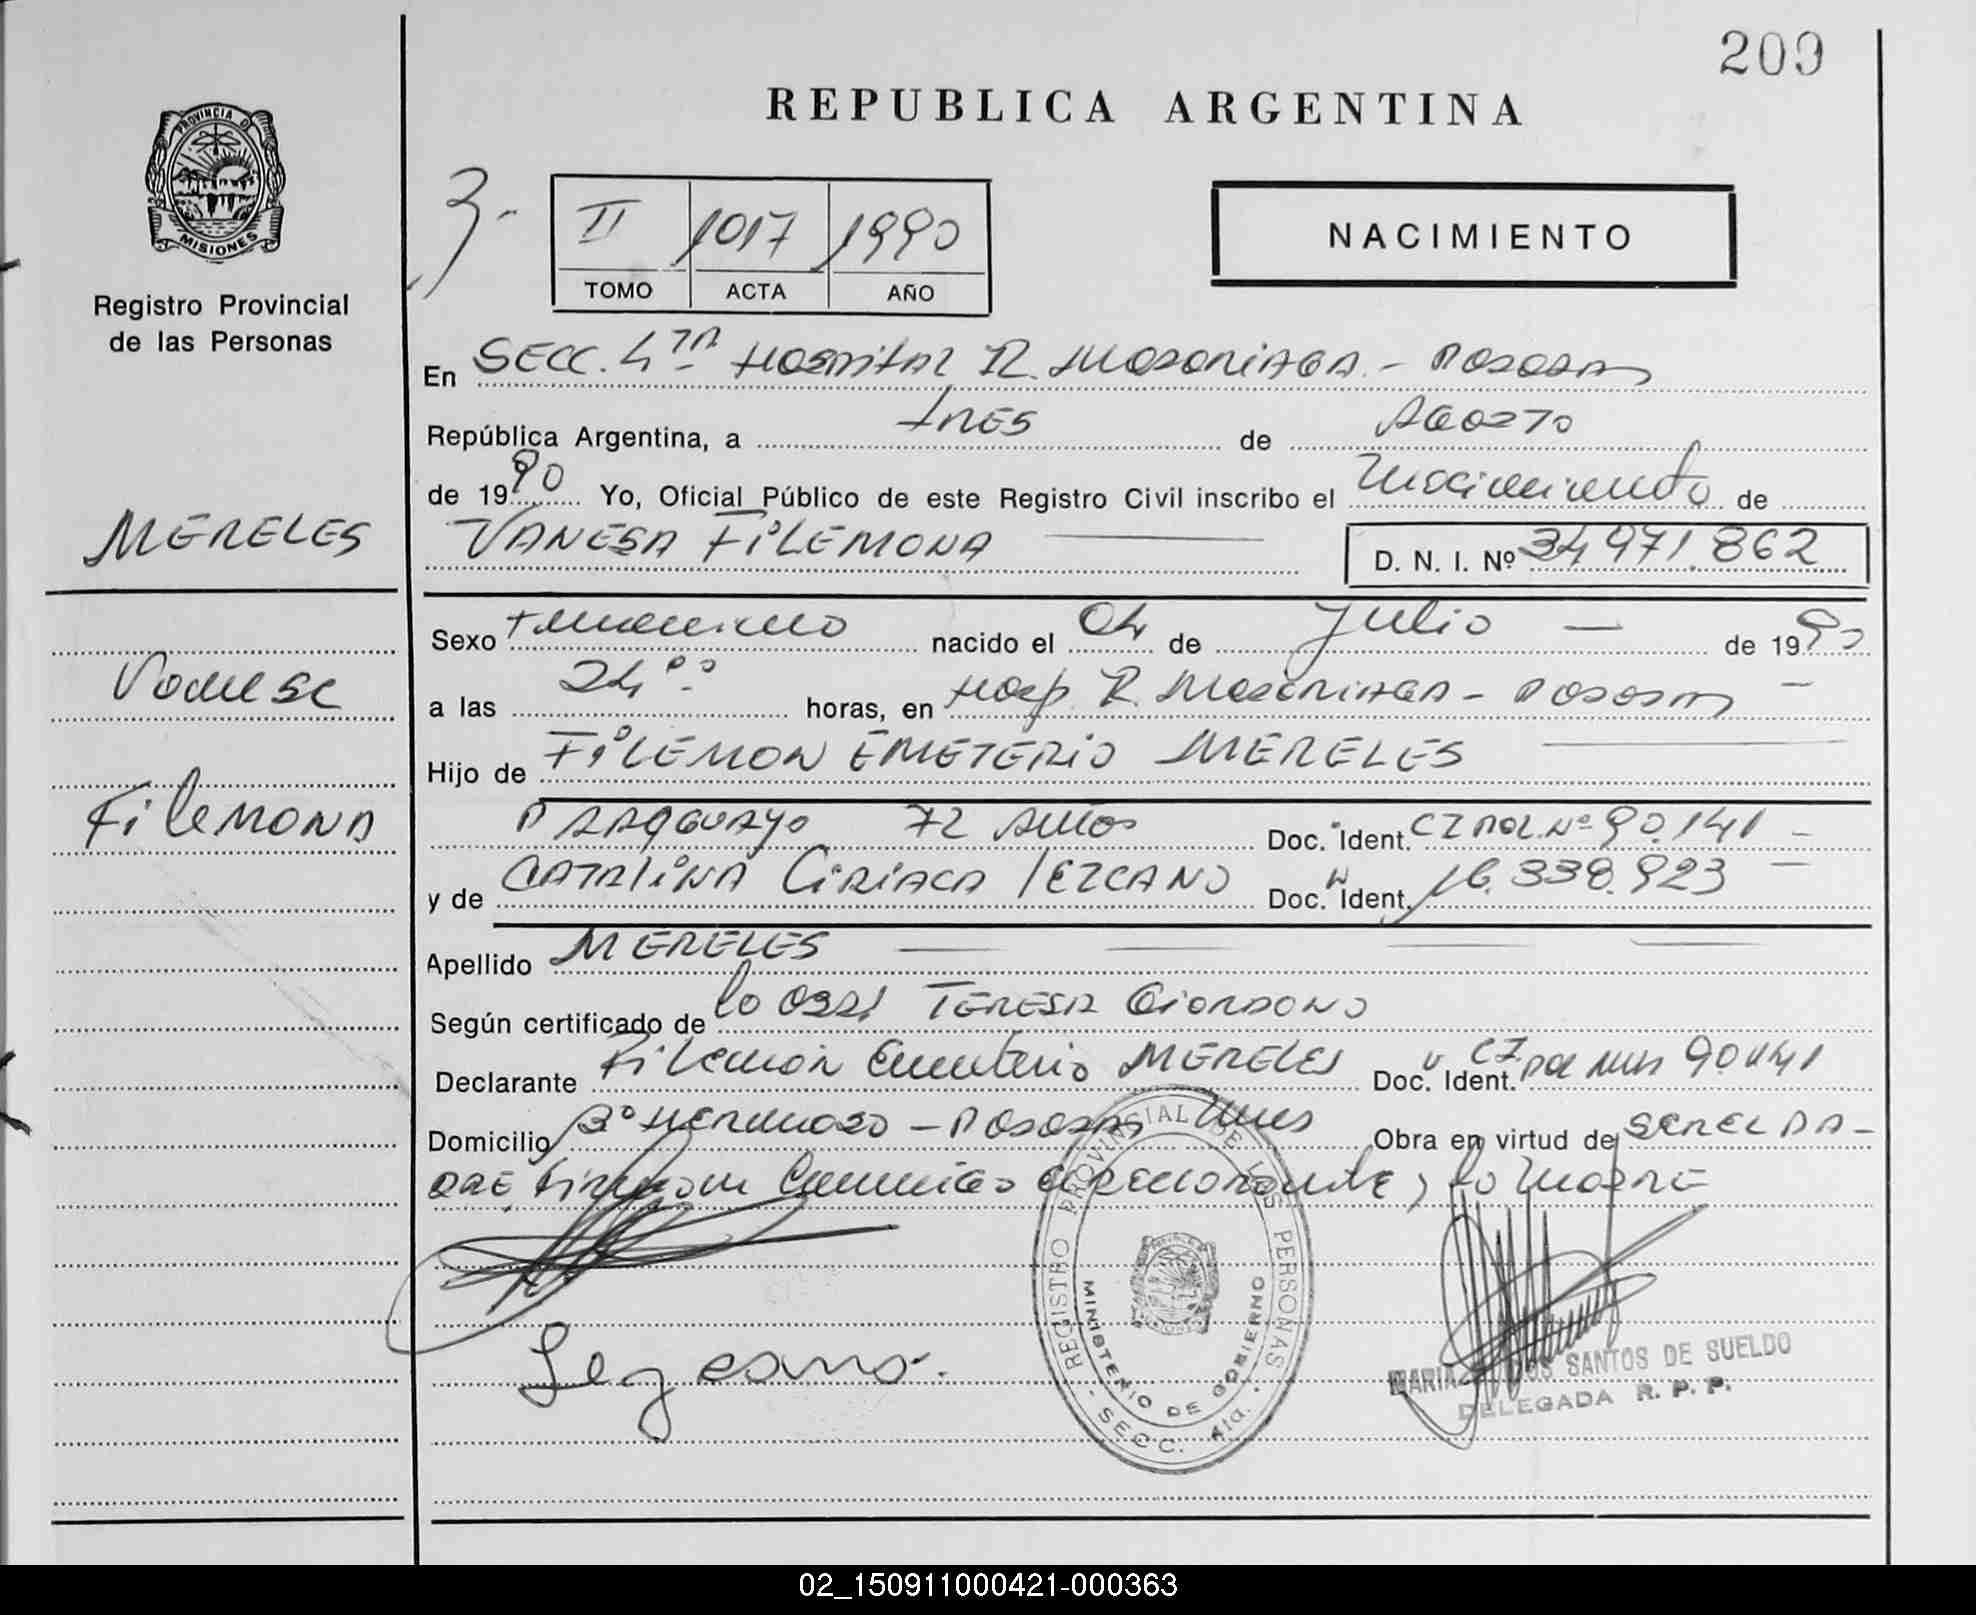 209
REPUBLICA ARGENTINA
PROVINCIA DE
MISIONES
Registro Provincial
de las Personas
3-
II 1017 1990
TOMO ACTA AÑO
NACIMIENTO
En SECC. 4TA Hospital R. Madariaga - Posadas
República Argentina, a Tres de Agosto
de 1990 Yo, Oficial Público de este Registro Civil inscribo el nacimiento de
MERELES
VANESA FILEMONA D. N. I. Nº 34.971.862
Sexo Femenino nacido el 04 de Julio — de 1990
Vanesa
a las 24:00 horas, en Hosp. R. Madariaga - Posadas —
Hijo de FILEMON EMETERIO MERELES
Filemona
Paraguayo 72 Años Doc. Ident. CI POL. Nº 90.141 -
y de CATALINA CIRIACA LEZCANO Doc. Ident. 16.338.923 —
Apellido MERELES
Según certificado de la TERESA Giordano
Declarante Filemón Emeterio MERELES Doc. Ident. CI. Pol 90.141
Domicilio Bº Hermoso - Posadas Mnes Obra en virtud de SER EL PA-
DRE, firman conmigo el declarante y la Madre
Lezcano.
REGISTRO PROVINCIAL DE LAS PERSONAS
MINISTERIO DE GOBIERNO
- SECC. 4ta. -
MARIA DOS SANTOS DE SUELDO
DELEGADA R. P. P.
02_150911000421-000363